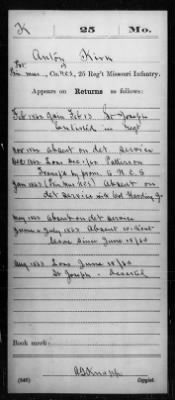 K 25 Mo.
Antoy Kirn
Pvt
Prin. mus., Co. N.C.S, 25 Reg't Missouri Infantry.
Appears on Returns as follows:
Feb 1863 Gain Feb 13 St Joseph
Enlisted in Regt
Nov 1862 absent on det service
Dec 1862 Loss Dec 1/62 Patterson
Transf by prom to N.C.S
Jan 1863 (Prin Mus NCS) Absent on
det Service with Col Harding Jr
May 1863 Absent on det service
June & July 1863 Absent without
leave since June 18/63
Aug 1863 Loss June 18/63
St Joseph - Deserted
Book mark:
(546)
Copyist.